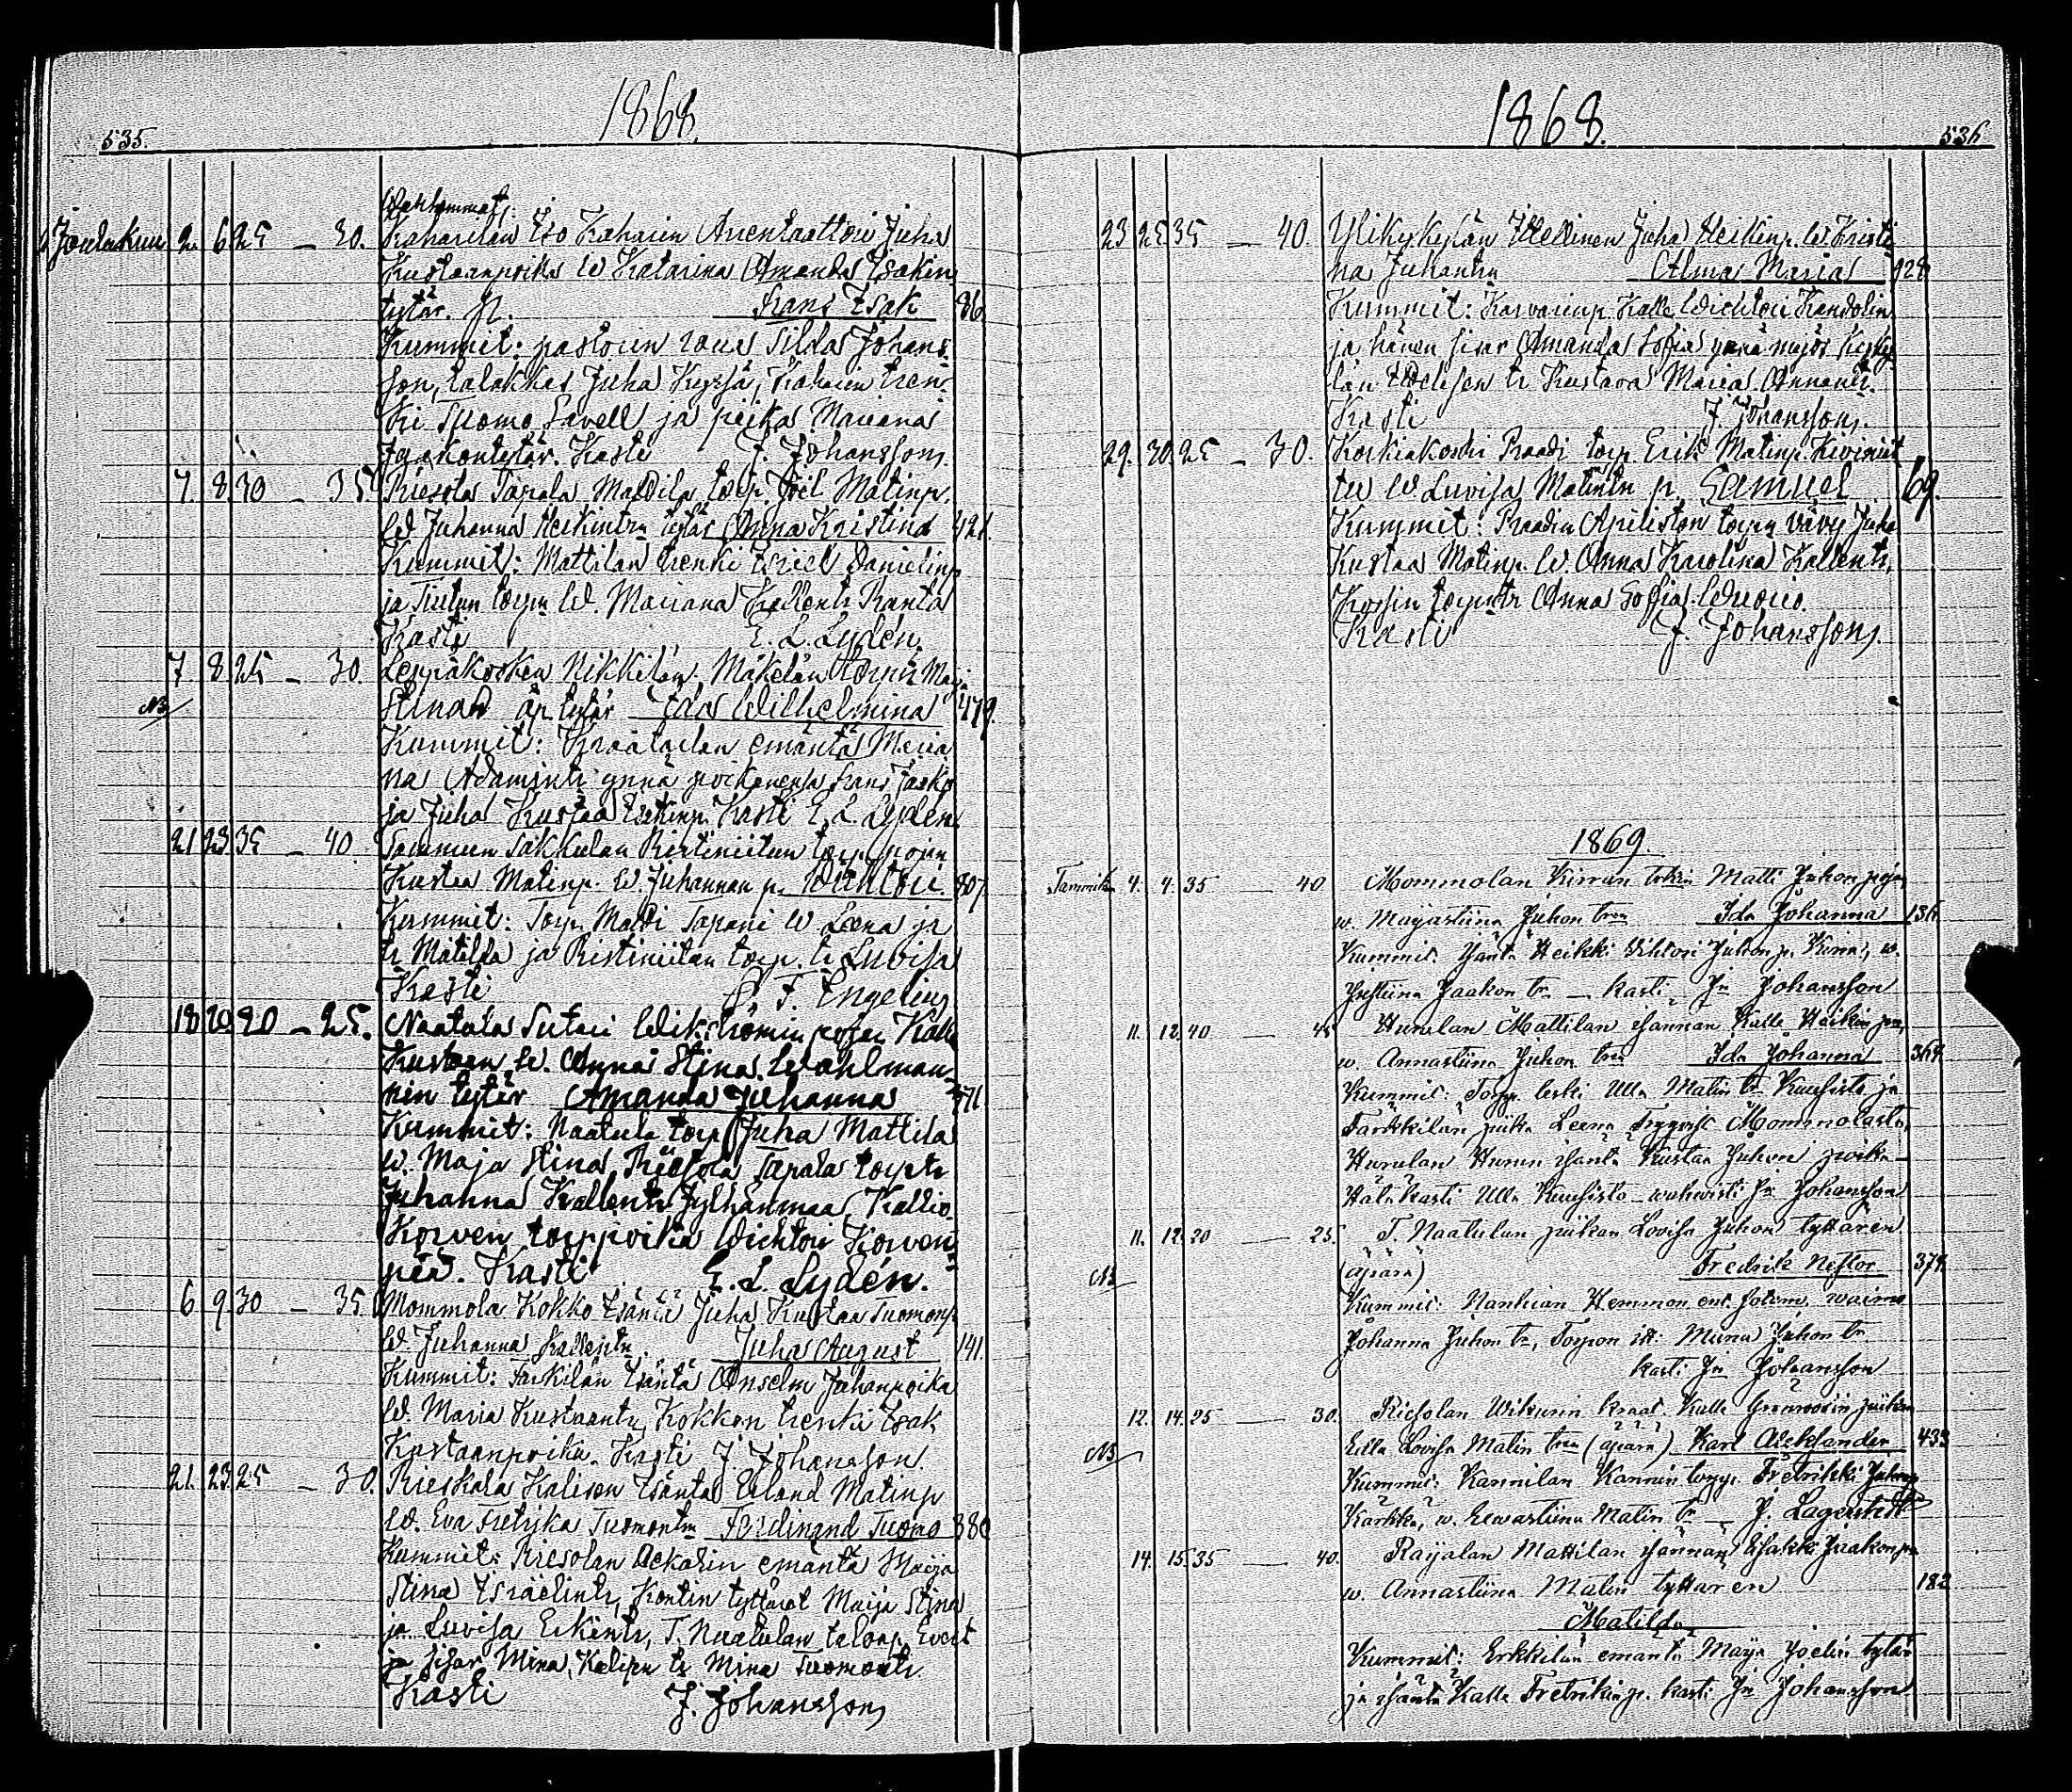 535.
1868.
Wanhemmat:
Joulukuu 2. 6. 25 — 30. Kaharilan Iso Kaharin Arentaattori Juha
Kustaanpoika W Katarina Amanda Isakin
tytär. p. Frans Isak 86.
Kummit: pastorin roua Silda Johans-
son, talokkas Juha Kyrsjä, Kaharin tren-
ki Tuomo Savell ja piika Mariana
Jaakontytär. Kasti J. Johansson.
7. 8. 30 — 35 Riesola Tapala Mattila torp. Joel Matinp.
W. Juhanna Heikintrn tytär Anna Kristina 421.
Kummit: Mattilan trenki Israel Danielinp
ja torpn W. Mariana Kallentr Ranta
Kasti E. L. Lydén.
7. 8. 25 — 30. Leppäkosken Nikkilän Mäkelän torpn Maja
NB Stinan äp. tytär Ida Wilhelmina 479.
Kummit: emäntä Maria
na Adamintr ynnä poikanensa Frans
ja Juha Kustaa Kasti E. L. Lydén
21 23. 35 — 40. Sammun Sakkulan Ristiniitun torp. pojan
Kustaa Matinp. W. Juhannan p. Wihtori. 807.
Kummit: Torp. Matti Tapani W Leena ja
tr Matilda ja Ristiniitun torp. tr Luvisa
Kasti F. Engelius
18 20. 20 — 25. Naatula Sutari Wikströmin pojan Kalle
Kustaan W. Anna Stina Wahlman-
nin tytär Amanda Juhanna 371
Kummit: Naatula torp Juha Mattila
W. Maja Stina, Riesola Tapala torp tr
Juhanna Kallentr Jylhänmaa, Kallio
Korven torppoika Wichtori Korven-
pää. Kasti E. L. Lydén.
6. 9. 30 — 35. Mommola Kokko Isäntä Juha Kustaa Tuomonp
W. Juhanna Kallentr. Juha August 141.
Kummit: Isäntä Anselm Juhanpoika
W. Maria Kustaantr, Kokkon trenki Isak
Kustaanpoika. Kasti J. Johansson.
21. 23. 25 — 30. Isäntä Erland Matinp
W. Eva Fretrika Tuomontr Ferdinand Tuomo 380
Kummit: Riesolan emäntä Maija
Stina Israelintr, Kontin tyttäret Maija Stina
ja Luvisa Erkintr, T. Naatulan talonp. Evert
ja sisar Mina, tr Mina Tuomontr.
Kasti J. Johansson
1868.
536
23 25. 35 — 40. Ylikyskylän Itellinen Juha Heikinp. W Kristi
na Juhantr Alma Maria 928
Kummit: Karvarinp. Kalle Wichtori Kandolin
ja hänen sisar Amanda Sofia ynnä myös
län tr Kustava Maria Annantr.
Kasti J. Johansson.
29. 30. 25 — 30. Koskiakoski Raadi torp. Erik Matinp. Kiviniit
tu W. Luvisa Matintr p. Samuel 69.
Kummit: Raadin torpn vävy Juha
Kustaa Matinp. W. Anna Karolina Kallentr,
torpn tr Anna Sofia Wuorio.
Kasti J. Johansson.
1869.
Tammik. 4. 4. 35 — 40 Mommolan Kirran Matti Juhon pojan
w. Mayastiina Juhon trn Ida Johanna 136
Kummit. Isäntä Heikki Wihtori Juhon p. Kirra, w.
Justiina Jaakon tr. — kasti Jn Johansson
11. 12. 40 — 45 Hurulan Mattilan isännän Kalle Heikin pn,
w. Annastiina Juhon trn Ida Johanna 364.
Kummit: Torpp. leski Ulla Matin tr Kuusisto ja
Tarkkilan piika Leena Mommolasta,
Hurulan isäntä Kustaa Juhon poika —
Hätäkasti Ulla Kuusisto wahwisti Jn Johansson
11. 12. 20 — 25. T. Naatulan piikan Lovisa Juhon tyttären
NB (äpärä) Fredrik Nestor 374.
Kummit: Hemmon ent. sotam. waimo
Johanna Juhon tr, Torpon itt: Miina Juhon tr
kasti Jn Johansson
12. 14. 25 — 30. Riesolan Kalle piikan
NB Ulla Lovisa Matin trn (äpärä) Karl Aleksander 433
Kummit: Kannilan Kannin torpp. Fretrikki Juhanp
Karkka, w. Eewastiina Matin tr — J. Lagerstedt
14. 15. 35 — 40. Raijalan Mattilan isännän Isakki Jaakon pn
w. Annastiina Matin tyttären 182
Matilda
Kummit: Erkkilän emäntä Maija Joelin tytär
ja isäntä Kalle Fretrikin p. kasti Jn Johansson